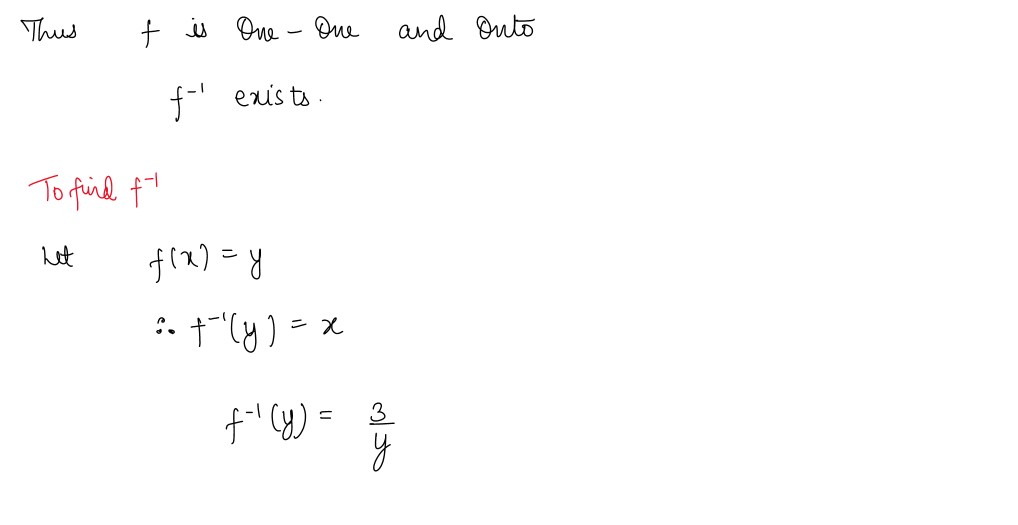 Thus f is One - One and Onto
f⁻¹ exists.
To find f⁻¹
Let f(x) = y
∴ f⁻¹(y) = x
f⁻¹(y) = 3/y